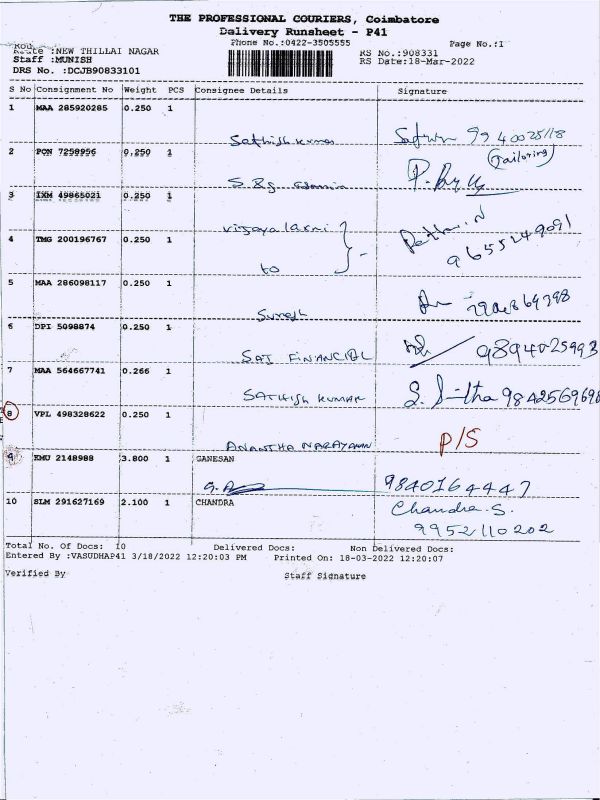 THE PROFESSIONAL COURIERS, Coimbatore
Dalivery Runsheet - P41
Phone No.:0422-3505555 Page No.:1
Route :NEW THILLAI NAGAR RS No.:908331
Staff :MUNISH RS Date:18-Mar-2022
DRS No. :DCJB90833101
S No Consignment No Weight PCS Consignee Details Signature
1 MAA 285920285 0.250 1
Sathish kumar
2 PON 7258956 0.250 1 (Tailoring)
3 IXM 49865021 0.250 1
vijaya laxmi
4 TMG 200196767 0.250 1 9655249091
to
5 MAA 286098117 0.250 1
Suresh
6 DPI 5098874 0.250 1
SAI FINANCIAL 9894025993
7 MAA 564667741 0.266 1
SATHISH KUMAR
8 VPL 498328622 0.250 1
ANANTHA NARAYANAN P/S
9 EMU 2148988 3.800 1 GANESAN
9840164447
10 SLM 291627169 2.100 1 CHANDRA Chandra.S.
9952110202
Total No. Of Docs: 10 Delivered Docs: Non Delivered Docs:
Entered By :VASUDHAP41 3/18/2022 12:20:03 PM Printed On: 18-03-2022 12:20:07
Verified By Staff Signature